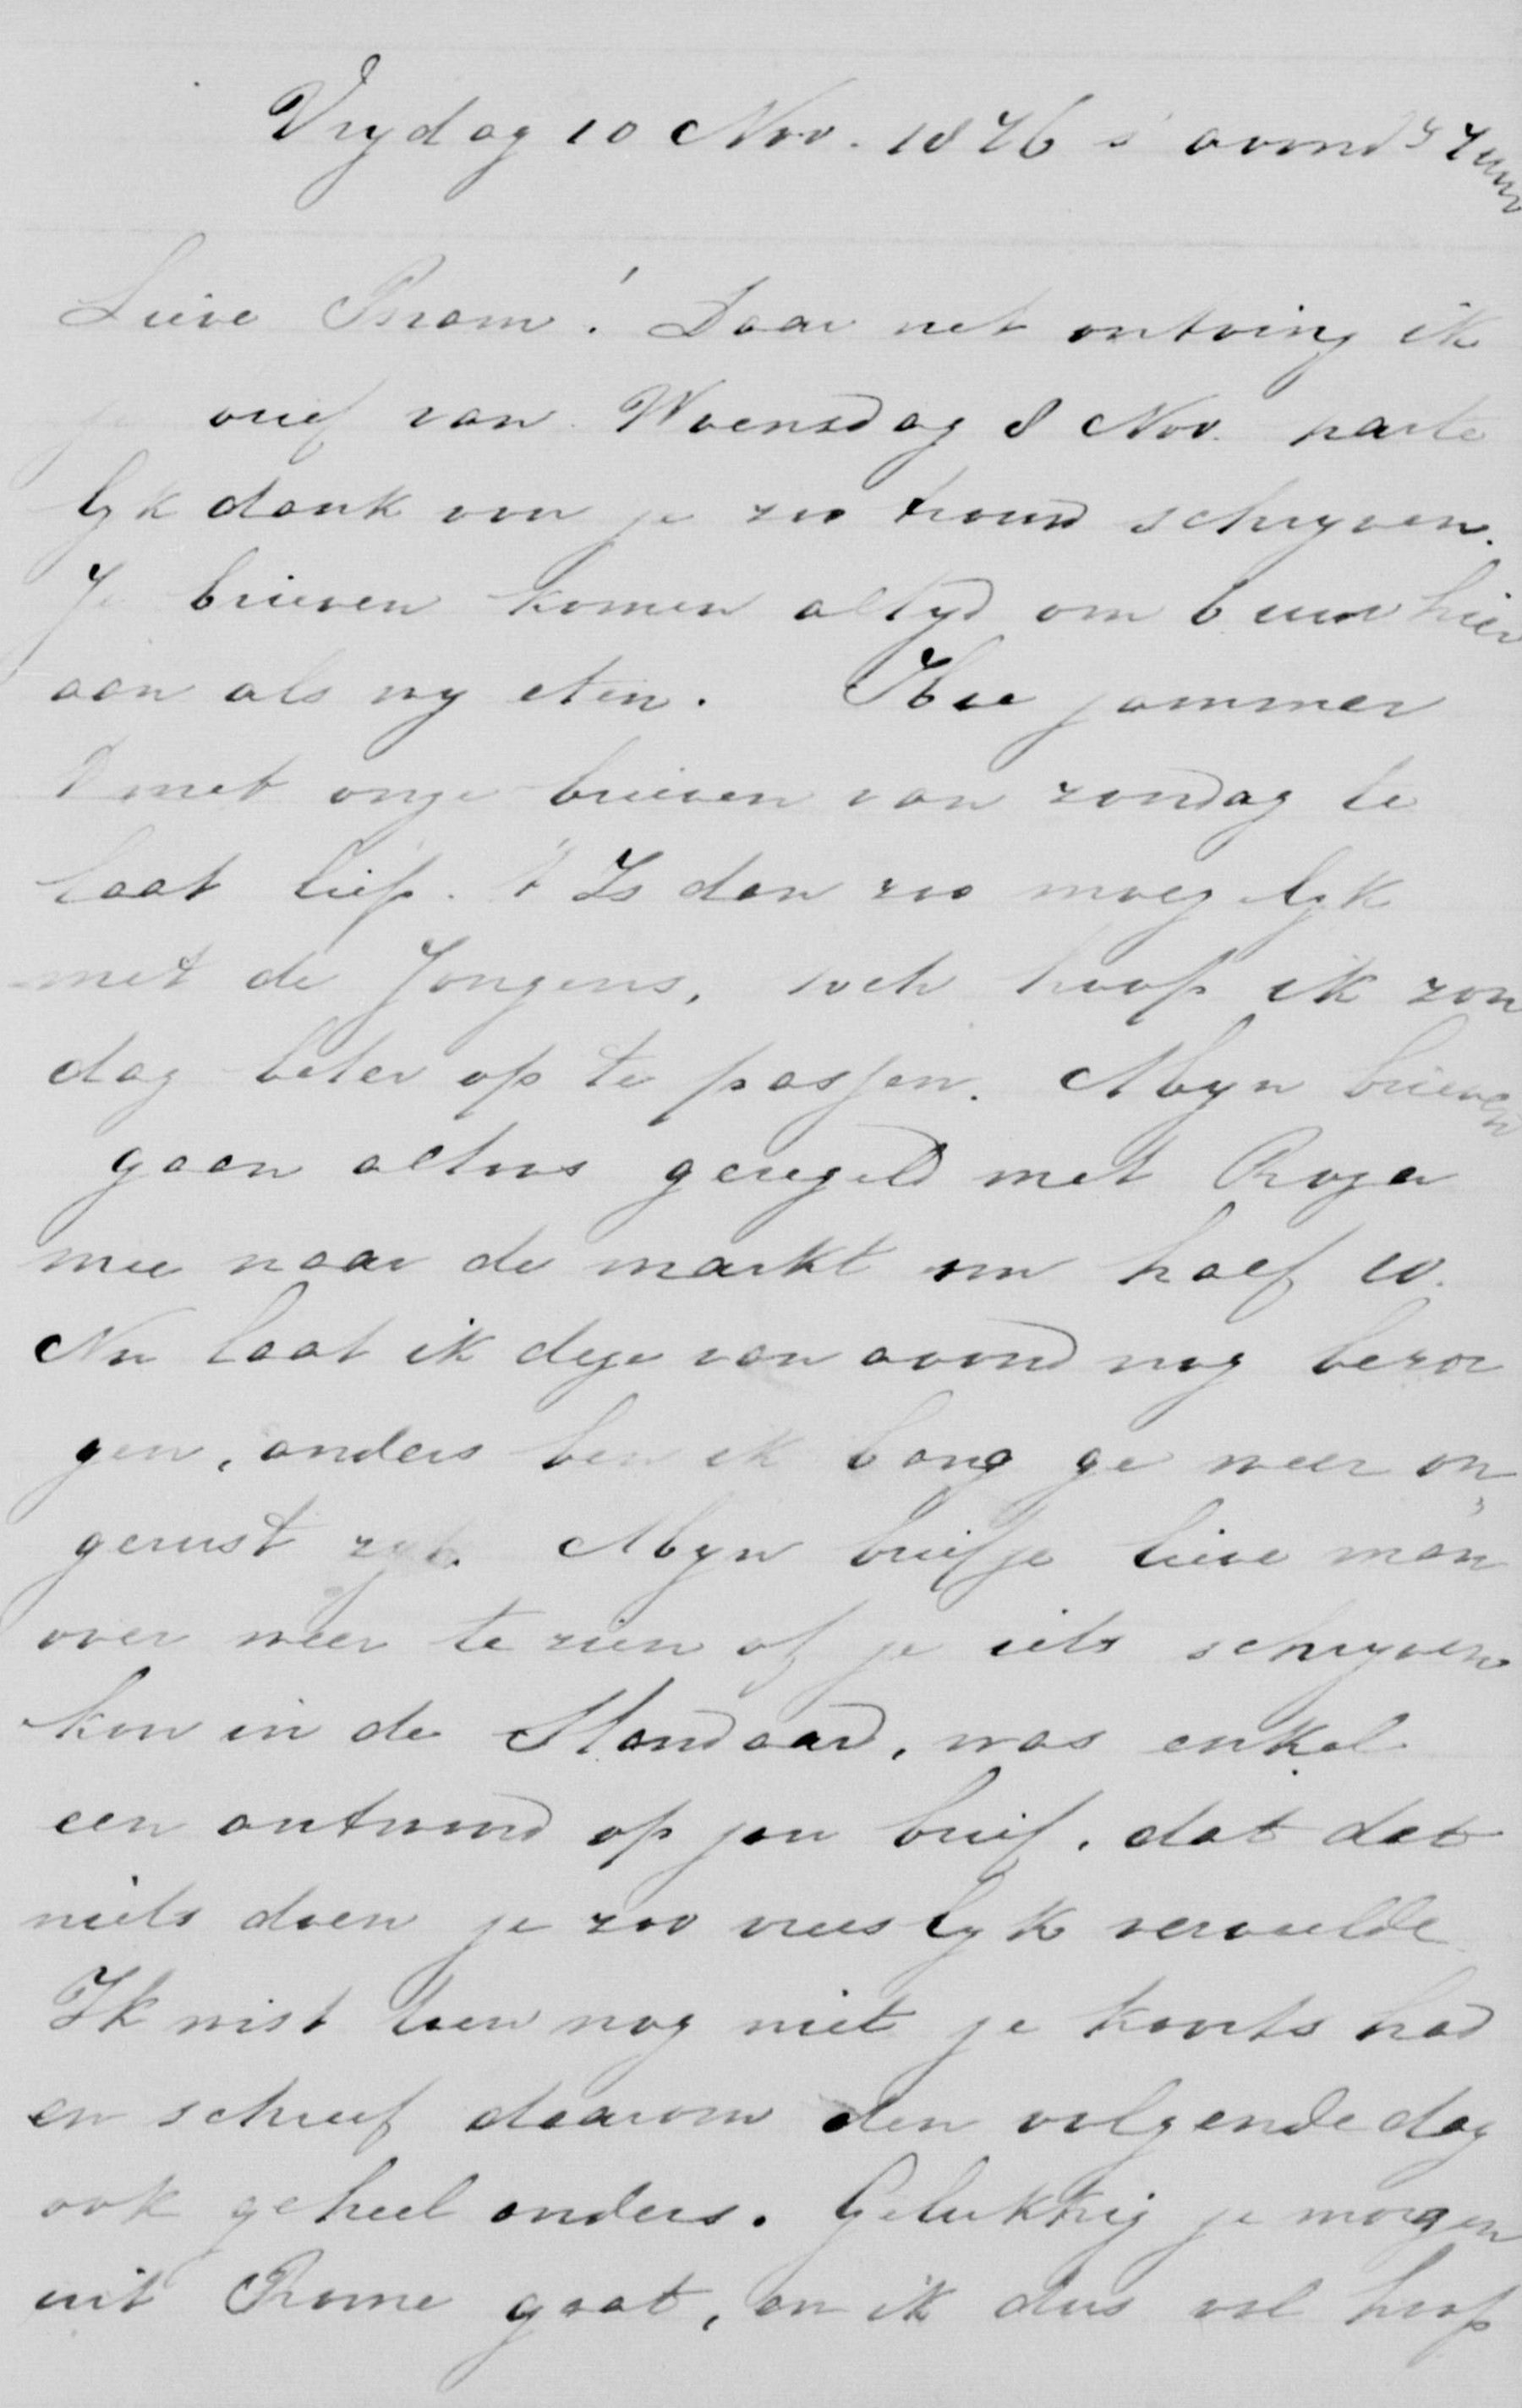 Vrydag 10 Nov. 1876 s' avonds 7 uur
Lieve Bram! Daar net ontving ik
je brief van Woensdag 8 Nov. harte
lyk dank voor je zoo trouw schryven.
Je brieven komen altyd om 6 uur hier
aan als wy eten. Hoe jammer
't met onze brieven van zondag te
laat liep. 't Is dan zoo moeylyk
met de Jongens, toch hoop ik zon
dag beter op te passen. Myn brieven
gaan altoos geregeld met Roza
mee naar de markt om half 10.
Nu laat ik deze van avond nog bezor
gen, anders ben ik bang ge weer on
gerust zyt. Myn briefje lieve man
over weer te zien of je iets schryven
kon in de Standaard, was enkel
een antwoord op jou brief, dat dat
niets doen je zoo vreeslyk verveelde
Ik wist toen nog niet je koorts had
en schreef daarom den volgende dag
ook geheel anders. Gelukkig je morgen
uit Rome gaat, en ik dus vol hoop